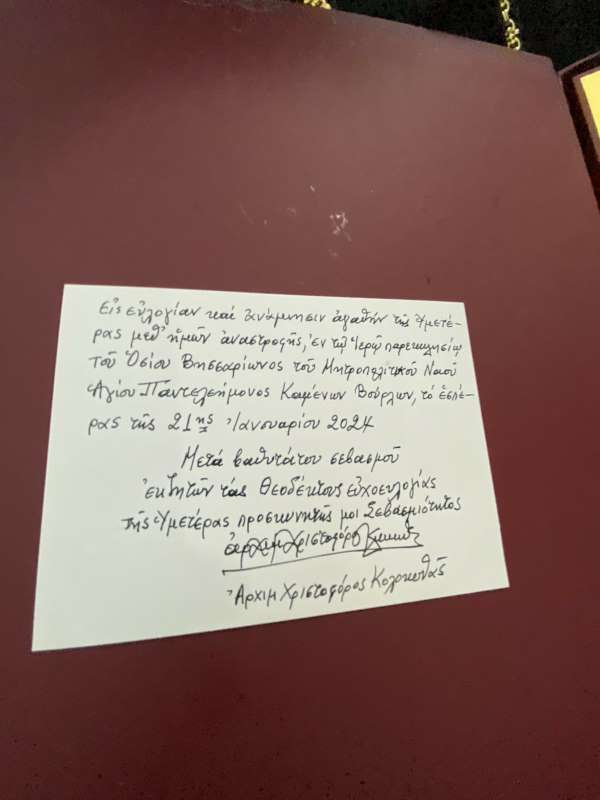 Εἰς εὐλογίαν καί ἀνάμνησιν ἀγαθήν τῆς Ὑμετέ-
ρας μεθ' ἡμῶν ἀναστροφῆς, ἐν τῷ Ἱερῷ παρεκκλησίῳ
τοῦ Ὁσίου Βησσαρίωνος τοῦ Μητροπολιτικοῦ Ναοῦ
Ἁγίου Παντελεήμονος Καμένων Βούρλων, τό ἑσπέ-
ρας τῆς 21ης Ἰανουαρίου 2024
Μετά βαθυτάτου σεβασμοῦ
ἐκζητῶν τάς Θεοδέκτους εὐχοευλογίας
τῆς Ὑμετέρας προσκυνητῆς μοι Σεβασμιότητος
Ἀρχιμ Χριστοφόρος